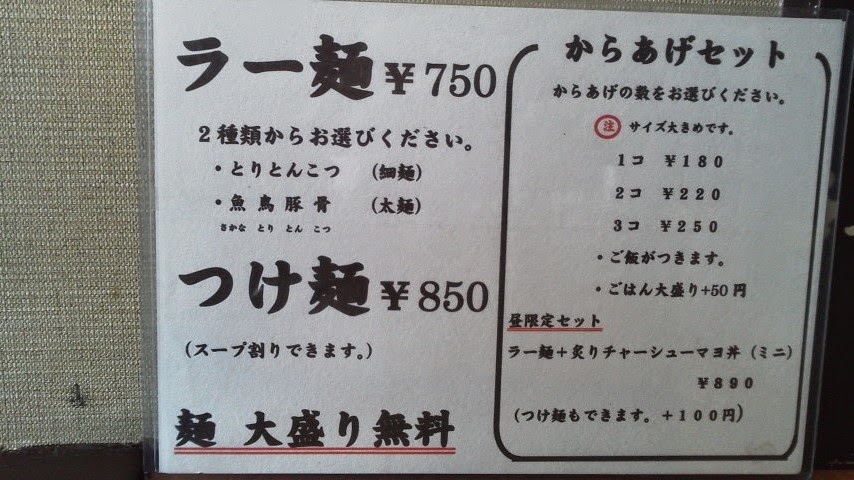 ラー麺 ￥750
2種類からお選びください。
・とりとんこつ (細麺)
・魚鳥豚骨 (太麺)
さかな とり とん こつ
つけ麺 ￥850
(スープ割りできます。)
麺 大盛り無料
からあげセット
からあげの数をお選びください。
注 サイズ大きめです。
1コ ￥180
2コ ￥220
3コ ￥250
・ご飯がつきます。
・ごはん大盛り+50円
昼限定セット
ラー麺＋炙りチャーシューマヨ丼（ミニ）
￥890
(つけ麺もできます。＋100円)